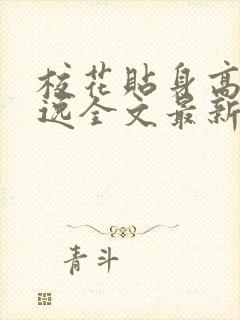 校花貼身高
逸全文最新
青斗